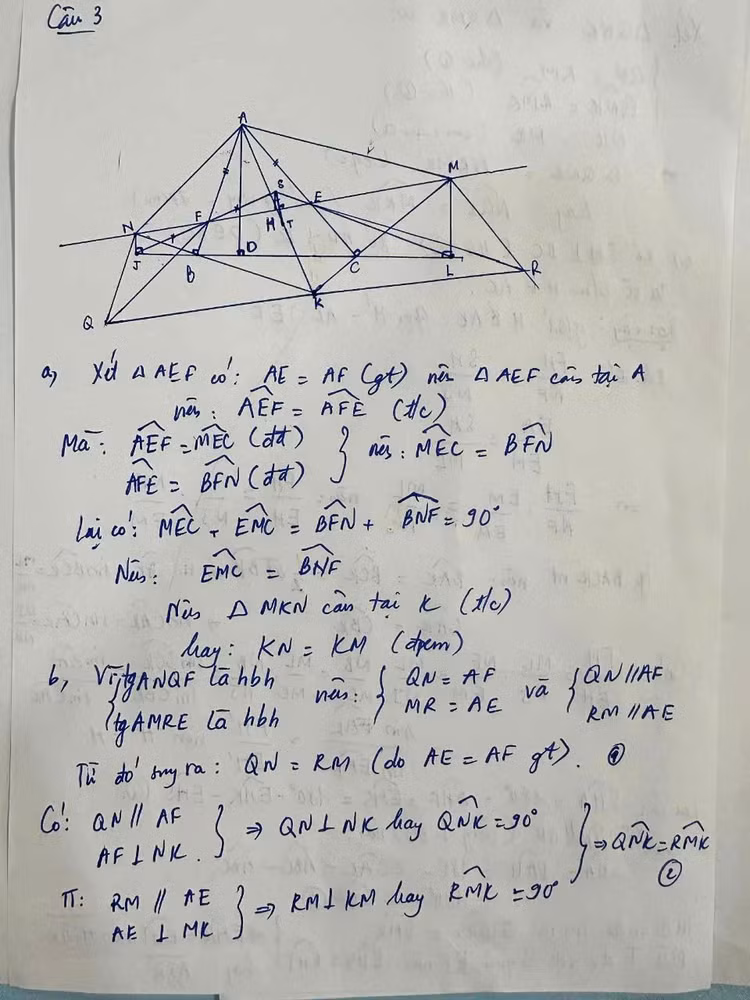 Câu 3
A
M
S
E
N
F
H
T
J
B
D
C
L
R
K
Q
a, Xét Δ AEF có: AE = AF (gt) nên Δ AEF cân tại A
nên: \widehat{AEF} = \widehat{AFE} (t/c)
Mà: \widehat{AEF} = \widehat{MEC} (đđ)
\widehat{AFE} = \widehat{BFN} (đđ) } nên: \widehat{MEC} = \widehat{BFN}
Lại có: \widehat{MEC} + \widehat{EMC} = \widehat{BFN} + \widehat{BNF} = 90°
Nên: \widehat{EMC} = \widehat{BNF}
Nên Δ MKN cân tại K (t/c)
hay: KN = KM (đpcm)
b, Vì { tg ANQF là hbh
tg AMRE là hbh nên: { QN = AF
MR = AE và { QN // AF
RM // AE
Từ đó suy ra: QN = RM (do AE = AF gt). ①
Có: QN // AF
AF ⊥ NK. } ⇒ QN ⊥ NK hay \widehat{QNK} = 90°
TT: RM // AE
AE ⊥ MK } ⇒ RM ⊥ KM hay \widehat{RMK} = 90°
} ⇒ \widehat{QNK} = \widehat{RMK}
②